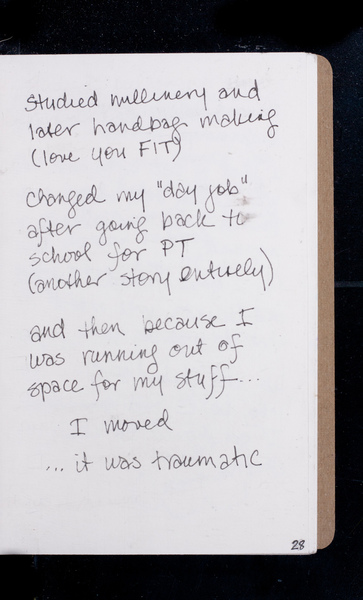 studied millinery and
later handbag making
(love you FIT)
changed my "day job"
after going back to
school for PT
(another story entirely)
and then because I
was running out of
space for my stuff...
I moved
... it was traumatic
28